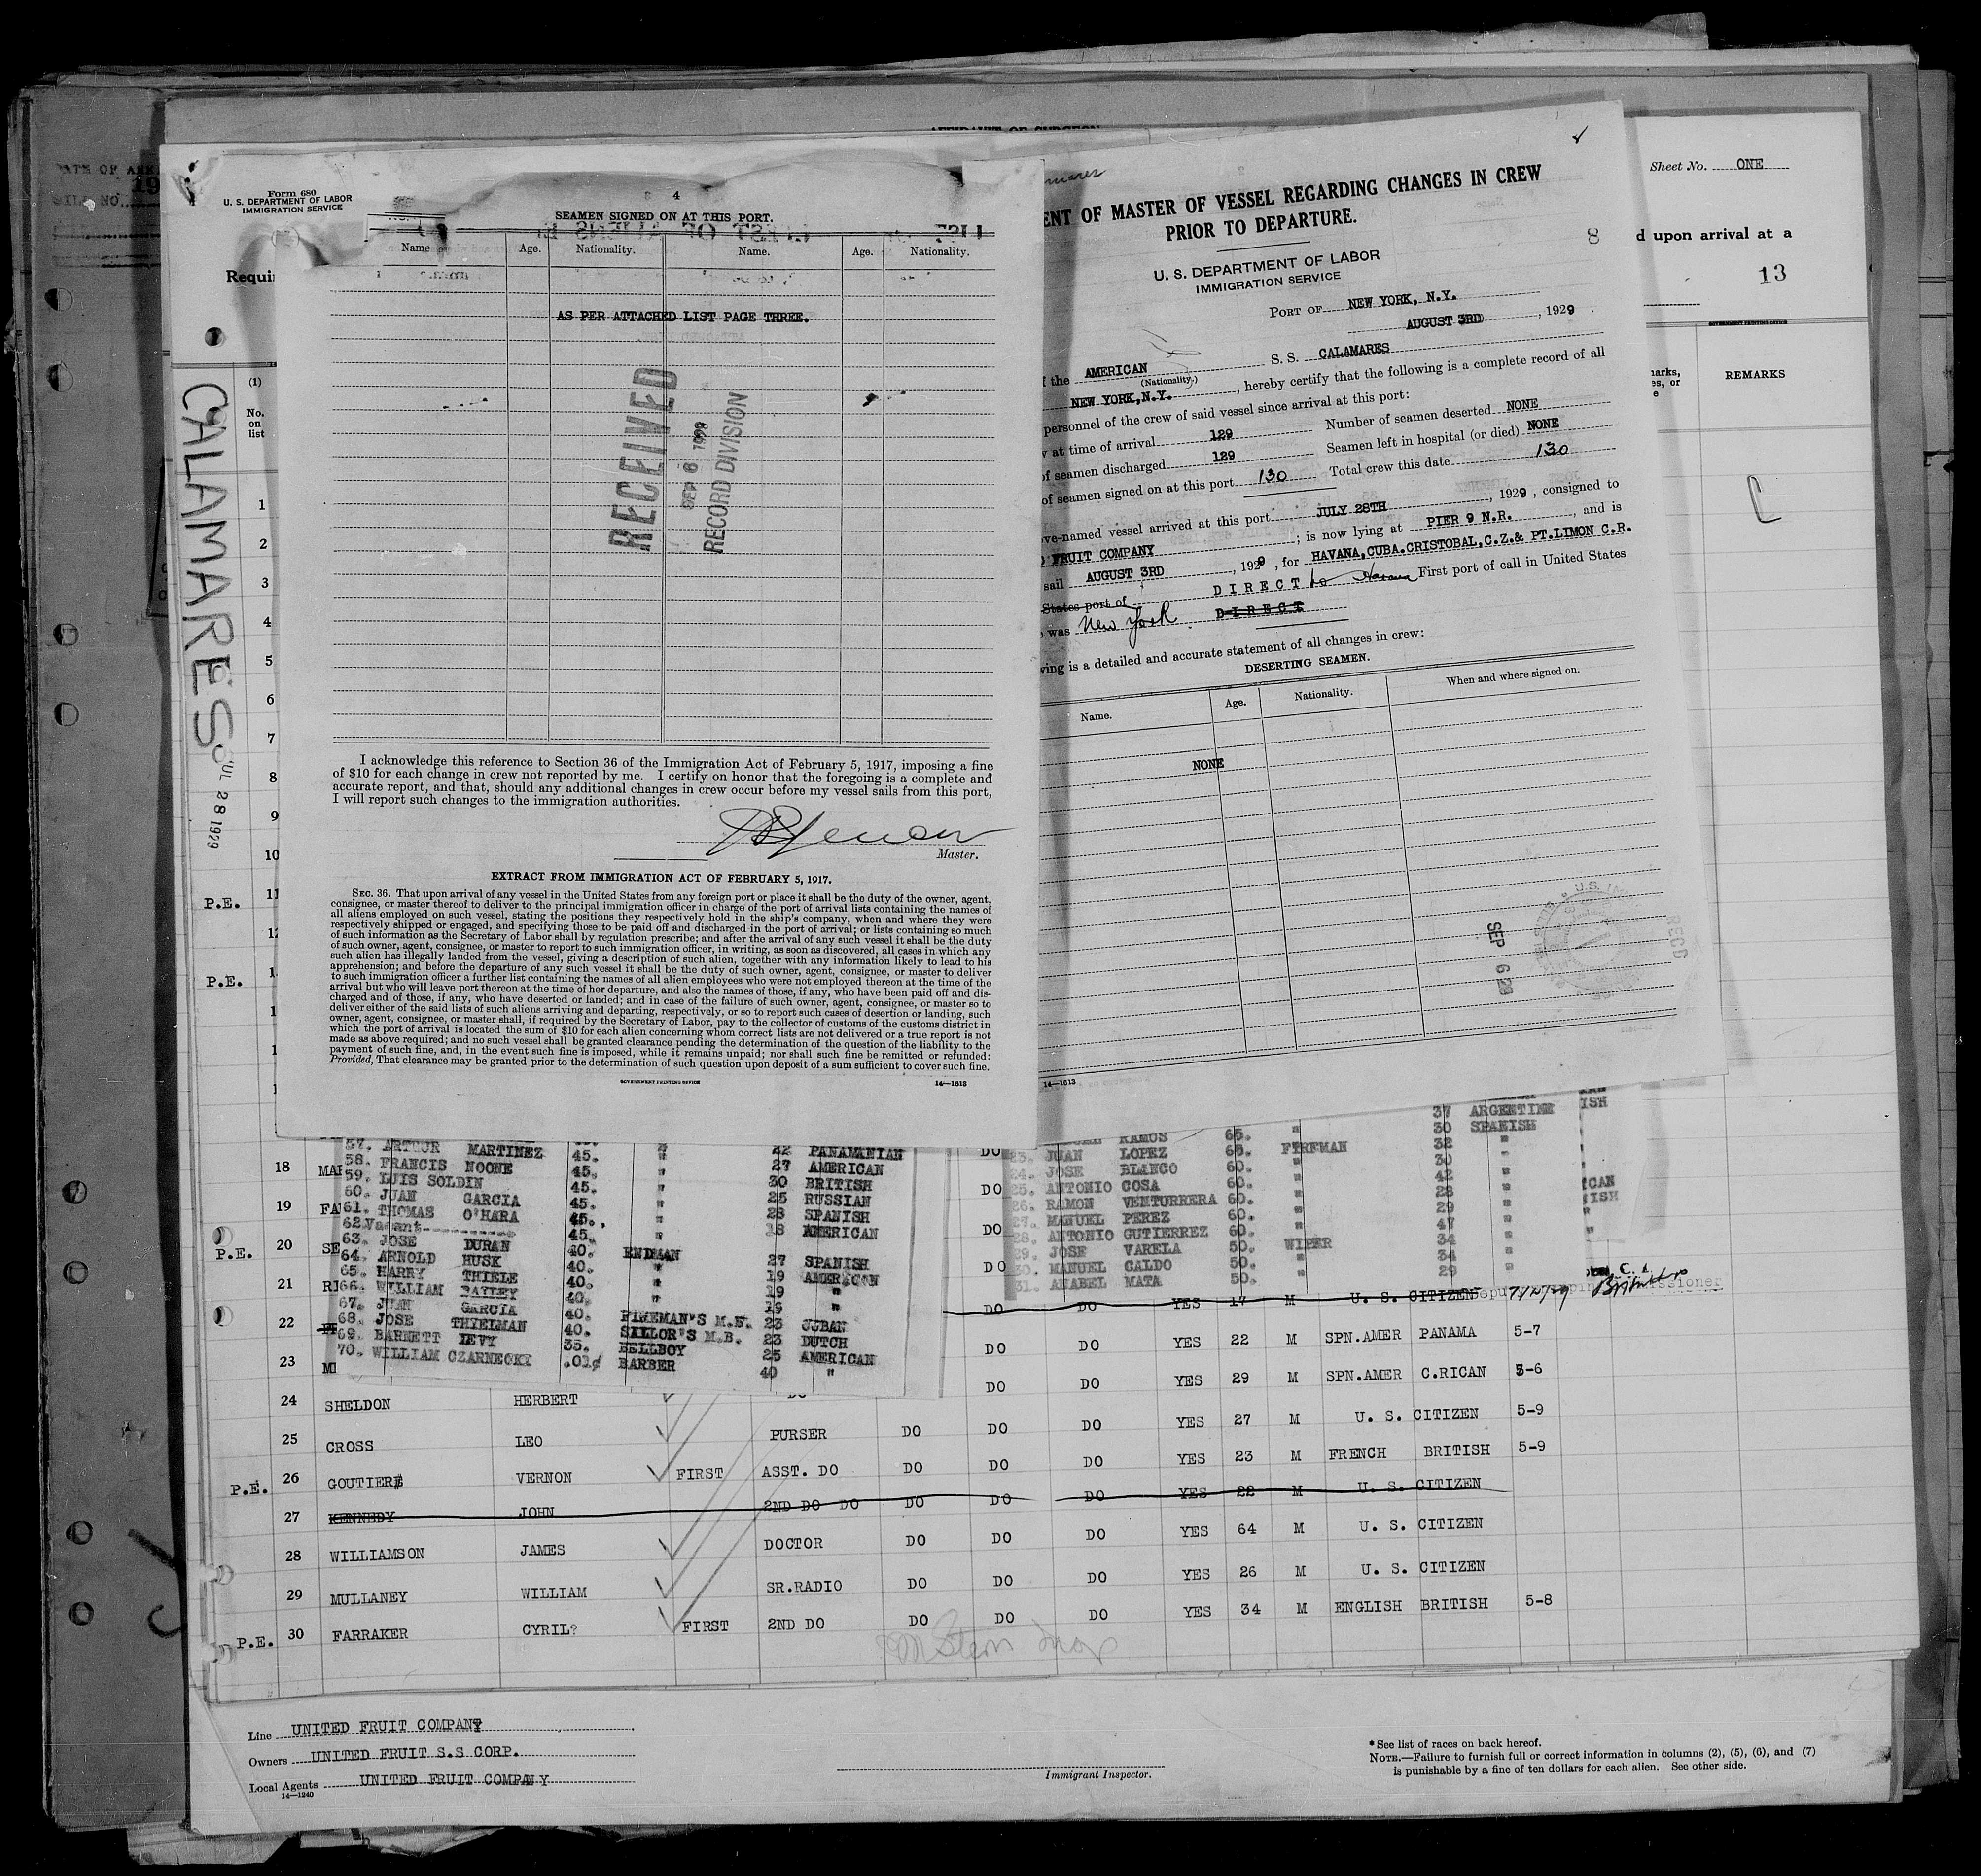 Form 680
U. S. DEPARTMENT OF LABOR
IMMIGRATION SERVICE
4
SEAMEN SIGNED ON AT THIS PORT.
Name
Age.
Nationality.
Name.
Age.
Nationality.
AS PER ATTACHED LIST PAGE THREE.
RECEIVED
SEP 6 1929
RECORD DIVISION
I acknowledge this reference to Section 36 of the Immigration Act of February 5, 1917, imposing a fine
of $10 for each change in crew not reported by me. I certify on honor that the foregoing is a complete and
accurate report, and that, should any additional changes in crew occur before my vessel sails from this port,
I will report such changes to the immigration authorities.
Master.
EXTRACT FROM IMMIGRATION ACT OF FEBRUARY 5, 1917.
SEC. 36. That upon arrival of any vessel in the United States from any foreign port or place it shall be the duty of the owner, agent,
consignee, or master thereof to deliver to the principal immigration officer in charge of the port of arrival lists containing the names of
all aliens employed on such vessel, stating the positions they respectively hold in the ship's company, when and where they were
respectively shipped or engaged, and specifying those to be paid off and discharged in the port of arrival; or lists containing so much
of such information as the Secretary of Labor shall by regulation prescribe; and after the arrival of any such vessel it shall be the duty
of such owner, agent, consignee, or master to report to such immigration officer, in writing, as soon as discovered, all cases in which any
such alien has illegally landed from the vessel, giving a description of such alien, together with any information likely to lead to his
apprehension; and before the departure of any such vessel it shall be the duty of such owner, agent, consignee, or master to deliver
to such immigration officer a further list containing the names of all alien employees who were not employed thereon at the time of the
arrival but who will leave port thereon at the time of her departure, and also the names of those, if any, who have been paid off and dis-
charged and of those, if any, who have deserted or landed; and in case of the failure of such owner, agent, consignee, or master so to
deliver either of the said lists of such aliens arriving and departing, respectively, or so to report such cases of desertion or landing, such
owner, agent, consignee, or master shall, if required by the Secretary of Labor, pay to the collector of customs of the customs district in
which the port of arrival is located the sum of $10 for each alien concerning whom correct lists are not delivered or a true report is not
made as above required; and no such vessel shall be granted clearance pending the determination of the question of the liability to the
payment of such fine, and, in the event such fine is imposed, while it remains unpaid; nor shall such fine be remitted or refunded:
Provided, That clearance may be granted prior to the determination of such question upon deposit of a sum sufficient to cover such fine.
GOVERNMENT PRINTING OFFICE 14—1613
ENT OF MASTER OF VESSEL REGARDING CHANGES IN CREW
PRIOR TO DEPARTURE.
U. S. DEPARTMENT OF LABOR
IMMIGRATION SERVICE
8
PORT OF NEW YORK, N.Y.
AUGUST 3RD, 1929
f the AMERICAN S. S. CALAMARES
(Nationality.)
NEW YORK, N.Y., hereby certify that the following is a complete record of all
personnel of the crew of said vessel since arrival at this port:
w at time of arrival 129 Number of seamen deserted NONE
of seamen discharged 129 Seamen left in hospital (or died) NONE
of seamen signed on at this port 130 Total crew this date 130
ve-named vessel arrived at this port JULY 28TH, 1929, consigned to
D FRUIT COMPANY; is now lying at PIER 9 N.R., and is
sail AUGUST 3RD, 1929, for HAVANA,CUBA.CRISTOBAL,C.Z.& PT.LIMON C.R.
States port of DIRECT to Havana First port of call in United States
was New York. DIRECT
ving is a detailed and accurate statement of all changes in crew:
DESERTING SEAMEN.
Name.
Age.
Nationality.
When and where signed on.
NONE
SEP 6 29
RECD
14—1613
Sheet No. ONE
d upon arrival at a
13
REMARKS
Requi
(1)
No.
on
list
CALAMARES
JUL 28 1929
1
2
3
4
5
6
7
8
9
10
P.E. 11
12
P.E.
57. ARTHUR MARTINEZ 45. " 22 PANAMANIAN
58. FRANCIS NOONE 45. " 27 AMERICAN
59. LUIS SOLDIN 45. " 30 BRITISH
60. JUAN GARCIA 45. " 25 RUSSIAN
61. THOMAS O'HARA 45. " 28 SPANISH
62 Vacant 45. " 18 AMERICAN
63. JOSE DURAN 40. ENDMAN 27 SPANISH
64. ARNOLD HUSK 40. " 19 AMERICAN
65. HARRY THIELE 40. " 19 "
66. WILLIAM BAILEY 40. " 19 "
67. JUAN GARCIA 40. FIREMAN'S M.B. 23 CUBAN
68. JOSE THIELMAN 40. SAILOR'S M.B. 23 DUTCH
69. BARNETT LEVY 35. BELLBOY 25 AMERICAN
70. WILLIAM CZARNECKY .01¢ BARBER 40 "
37 ARGENTINE
RAMOS 65. 30 SPANISH
23. JUAN LOPEZ 60. FIREMAN 32 "
24. JOSE BLANCO 60. " 30 "
25. ANTONIO COSA 60. " 42 "
26. RAMON VENTURRERA 60. " 28 "
27. MANUEL PEREZ 60. " 29 "
28. ANTONIO GUTIERREZ 60. " 47 "
29. JOSE VARELA 50. WIPER 34 "
30. MANUEL CALDO 50. " 34 "
31. ANABEL MATA 50. " 29 "
18
19
P.E. 20
21 DO DO YES 17 M U. S. CITIZEN
22 DO DO YES 22 M SPN.AMER PANAMA 5-7
23 DO DO YES 29 M SPN.AMER C.RICAN 5-6
24 SHELDON HERBERT DO DO YES 27 M U. S. CITIZEN 5-9
25 CROSS LEO PURSER DO DO DO YES 23 M FRENCH BRITISH 5-9
P.E. 26 GOUTIER VERNON FIRST ASST. DO DO DO DO
27 KENNEDY JOHN 2ND DO DO DO DO DO YES 22 M U. S. CITIZEN
28 WILLIAMSON JAMES DOCTOR DO DO DO YES 64 M U. S. CITIZEN
29 MULLANEY WILLIAM SR.RADIO DO DO DO YES 26 M U. S. CITIZEN
P.E. 30 FARRAKER CYRIL? FIRST 2ND DO DO DO DO YES 34 M ENGLISH BRITISH 5-8
Line UNITED FRUIT COMPANY
Owners UNITED FRUIT S.S CORP.
Local Agents UNITED FRUIT COMPANY
14—1240
Immigrant Inspector.
*See list of races on back hereof.
NOTE.—Failure to furnish full or correct information in columns (2), (5), (6), and (7)
is punishable by a fine of ten dollars for each alien. See other side.